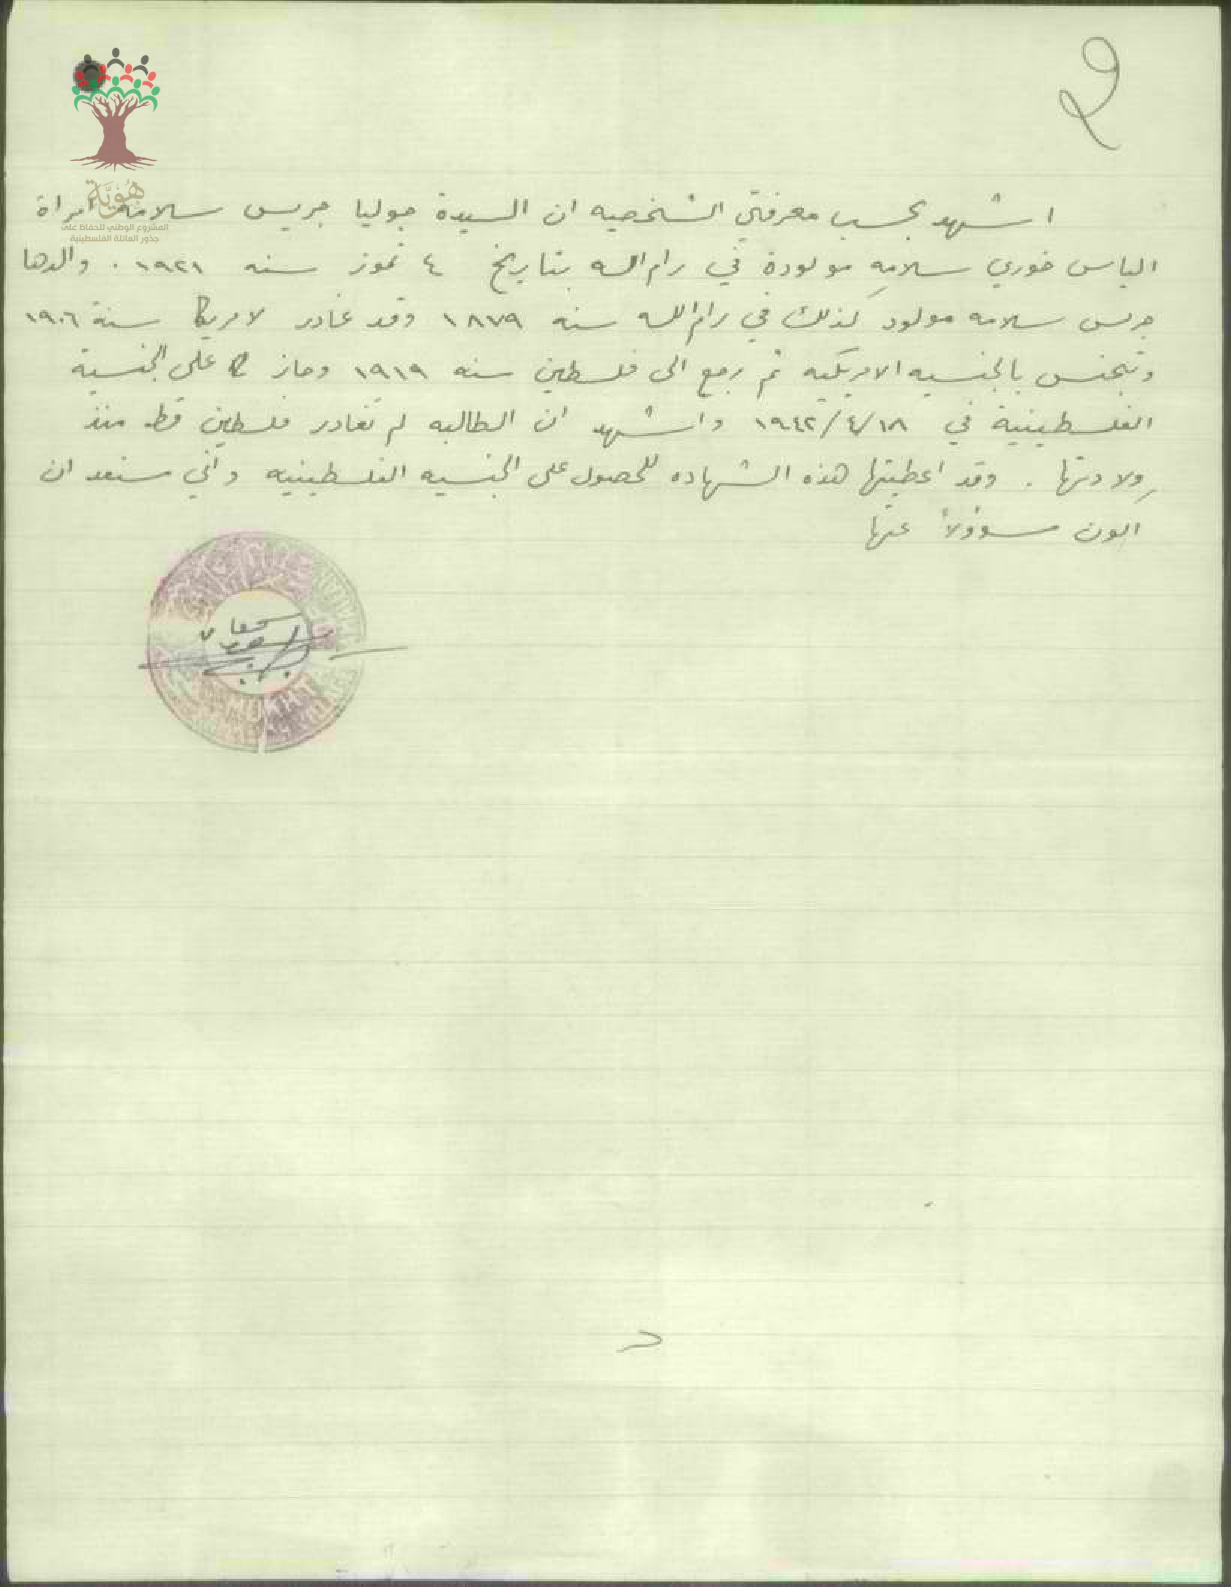 اشهد بحسب معرفتي الشخصيه ان السيدة جوليا جريس سلامه امرأة
الياس خوري سلامه مولودة في رام الله بتاريخ ٤ تموز سنه ١٩٢١ . والدها
جريس سلامه مولود كذلك في رام الله سنه ١٨٧٩ وقد غادر لامريكا سنة ١٩٠٦
وتجنس بالجنسيه الامريكيه ثم رجع الى فلسطين سنه ١٩١٩ وحاز على الجنسية
الفلسطينية في ١٨/٤/١٩٤٢ واشهد ان الطالبه لم تغادر فلسطين قط منذ
ولادتها . وقد اعطيتها هذه الشهاده للحصول على الجنسيه الفلسطينيه واني مستعد ان
اكون مسؤولاً عنها
هُوِيَّة
المشروع الوطني للحفاظ على
جذور العائلة الفلسطينية